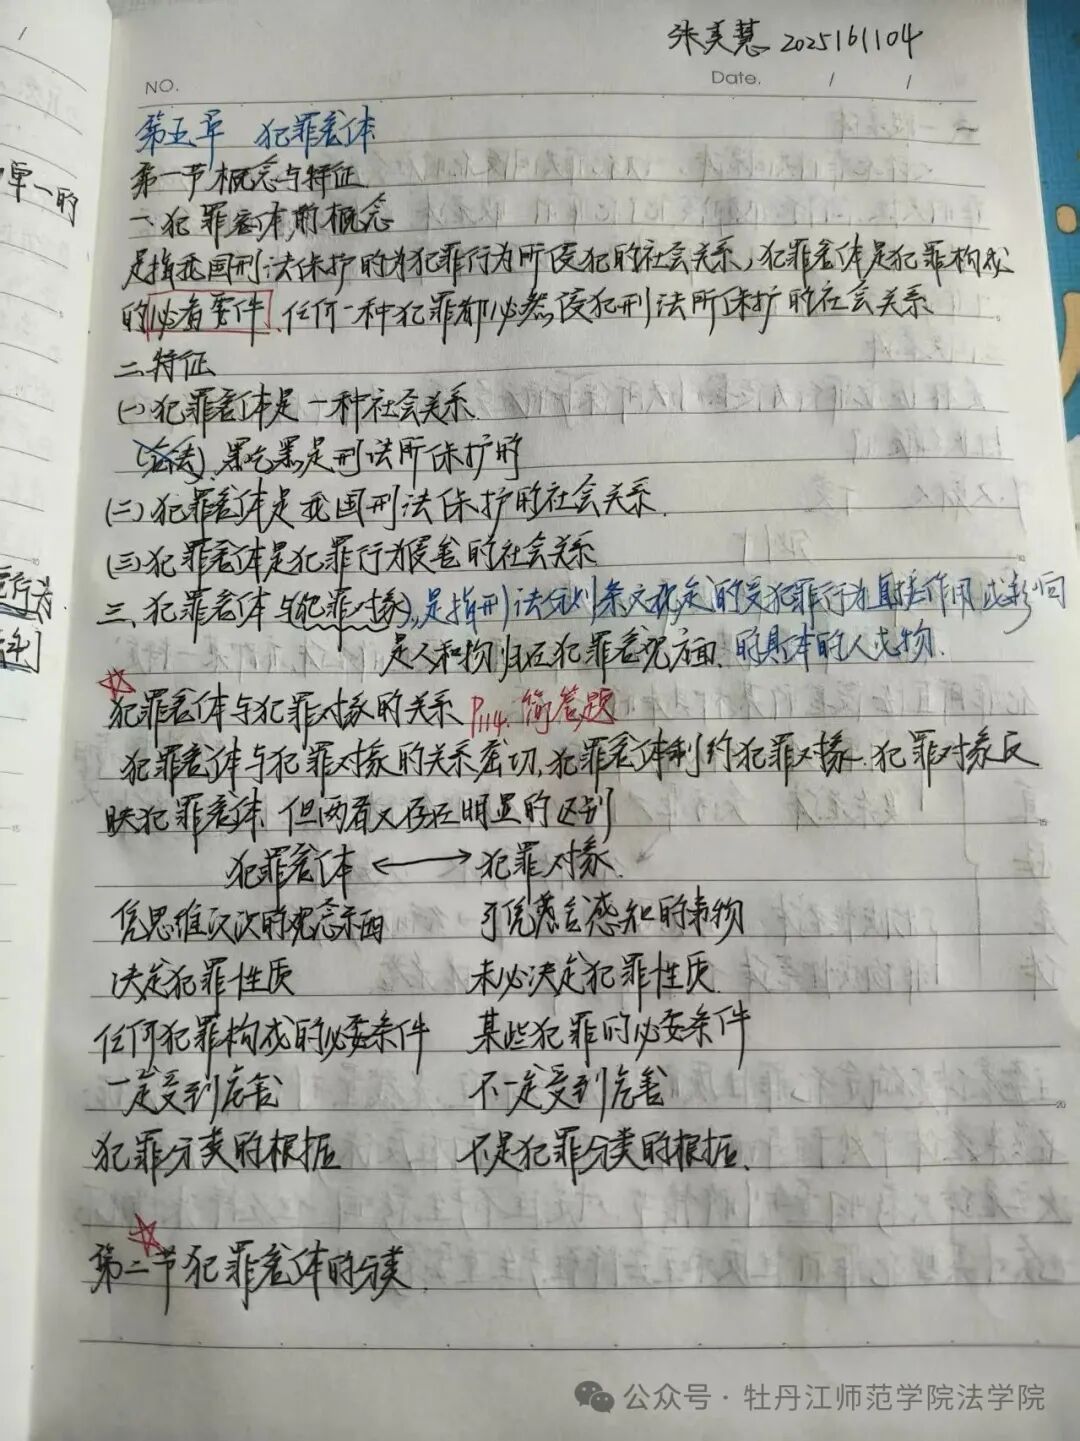 张美慧 2025161104
NO.
Date. / /
第五章 犯罪客体
第一节 概念与特征
一、犯罪客体的概念
是指我国刑法保护的为犯罪行为所侵犯的社会关系，犯罪客体是犯罪构成
的必备要件。任何一种犯罪都必然侵犯刑法所保护的社会关系
二、特征
(一)犯罪客体是一种社会关系
黑吃黑是刑法所保护的
(二)犯罪客体是我国刑法保护的社会关系.
(三)犯罪客体是犯罪行为侵害的社会关系
三、犯罪客体与(犯罪对象)，是指刑法分则条文规定的受犯罪行为直接作用或影响
是人和物 归在犯罪客观方面. 的具体的人或物.
犯罪客体与犯罪对象的关系 P114. 简答题
犯罪客体与犯罪对象的关系密切，犯罪客体制约犯罪对象. 犯罪对象反
映犯罪客体. 但两者又存在明显的区别
犯罪客体 ←→ 犯罪对象.
凭思维认识的观念东西 可凭感官感知的事物
决定犯罪性质 未必决定犯罪性质.
任何犯罪构成的必要条件 某些犯罪的必要条件
一定受到危害 不一定受到危害
犯罪分类的根据 不是犯罪分类的根据.
第二节 犯罪客体的分类.
单一的
行为
公众号·牡丹江师范学院法学院